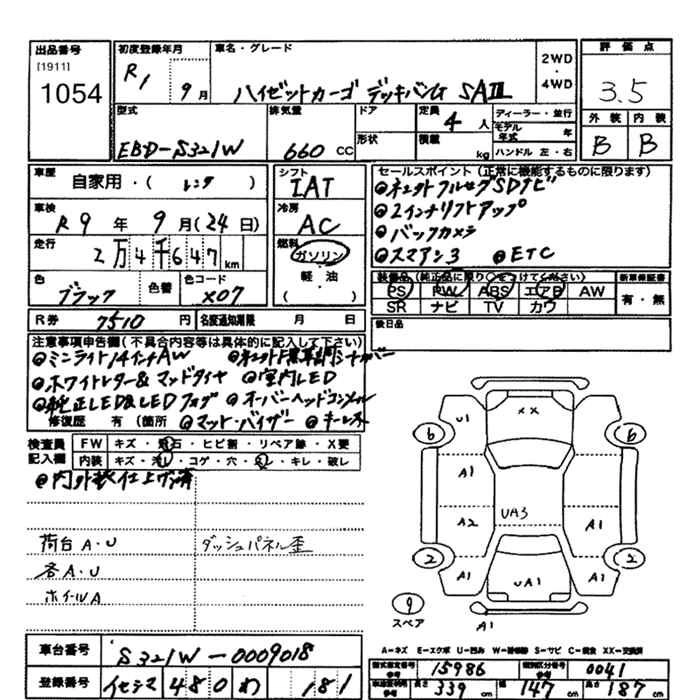 出品番号
[1911]
1054
初度登録年月
R1 9月
車名・グレード
ハイゼットカーゴ デッキバンG SAⅢ
2WD
・
4WD
評価点
3.5
外装 内装
B B
型式
EBD-S321W
排気量
660 CC
ドア
形状
定員
4 人
積載
kg
ディーラー・並行
モデル年式 年
ハンドル 左・右
車歴
自家用・( レンタ )
車検
R9年 9月(24日)
走行
2万4千647km
色
ブラック
色替
色コード
X07
シフト
IAT
冷房
AC
燃料
ガソリン
軽・油
( )
セールスポイント (正常に機能するものに限ります)
◎ネェクト フルセグSDナビ
◎2インチリフトアップ
◎バックカメラ
◎スマアシ3 ◎ETC
装備品(純正品に限り○をつけてください)
PS PW ABS エアB AW
SR ナビ TV カワ
新車保証書
有・無
後日品
R券 7510円
名変通知期限 月 日
注意事項申告欄(不具合内容等は具体的に記入して下さい)
◎ミニライト14インチAW
◎ホワイトレター&マッドタイヤ ◎室内LED
◎純正LED&LEDフォグ ◎オーバーヘッドコンソール
修復歴 有 (箇所 ◎マット・バイザー ◎キーレス
検査員
記入欄
FW キズ・飛石・ヒビ割・リペア跡・X要
内装 キズ・汚レ・コゲ・穴・スレ・キレ・破レ
◎内外装仕上げ済
荷台 A・U ダッシュパネル歪
各A・U
ホイールA
U1 XX
6 6
A1
A2 UA3 A1
2 2
A1 UA1 A1
9
スペア
A1
A=キズ E=エクボ U=凹み W=補修跡 S=サビ C=腐食 XX=交換済
車台番号
S321W-0009018
登録番号
480 わ 181
型式指定番号 15986 類別区分番号 0041
長さ 339 cm 幅 147 cm 高さ 187 cm